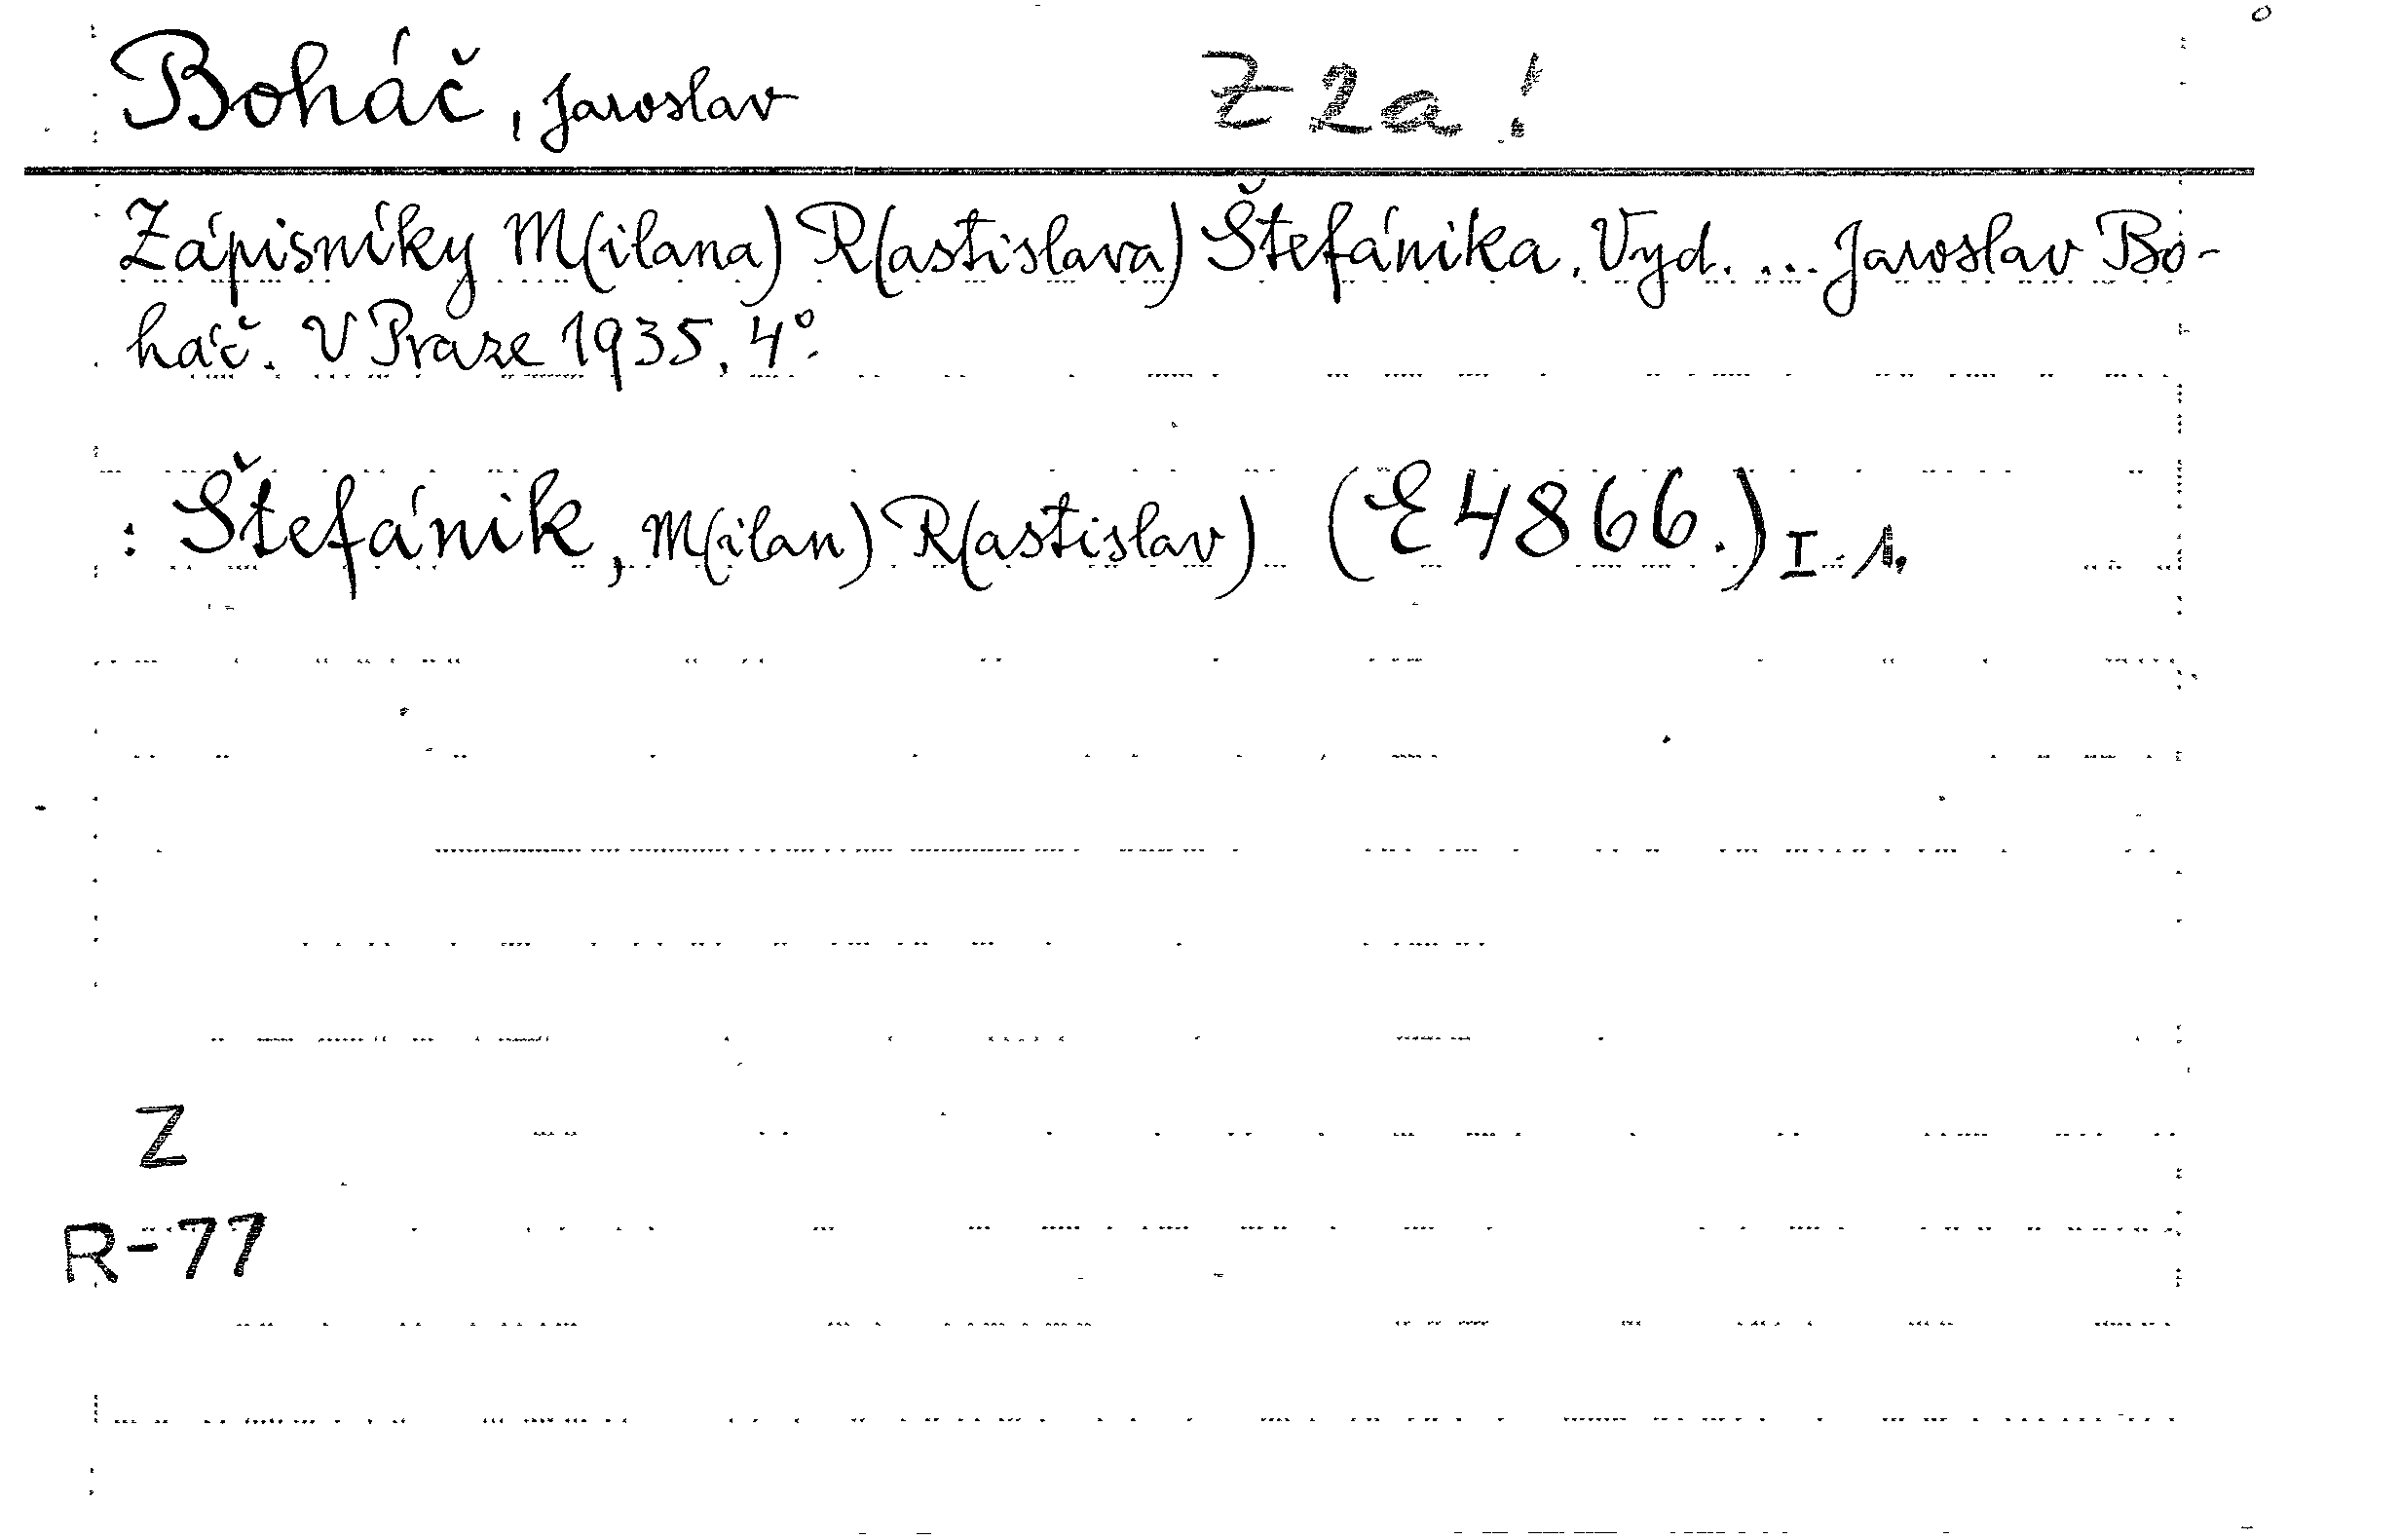 Boháč, Jaroslav Z 2a!
Zápisníky M(ilana) R(astislava) Štefánika. Vyd. ... Jaroslav Bo-
háč. V Praze 1935. 4°.
: Štefánik, M(ilan) R(astislav) (E 4866.) I. 1.
Z
R-77